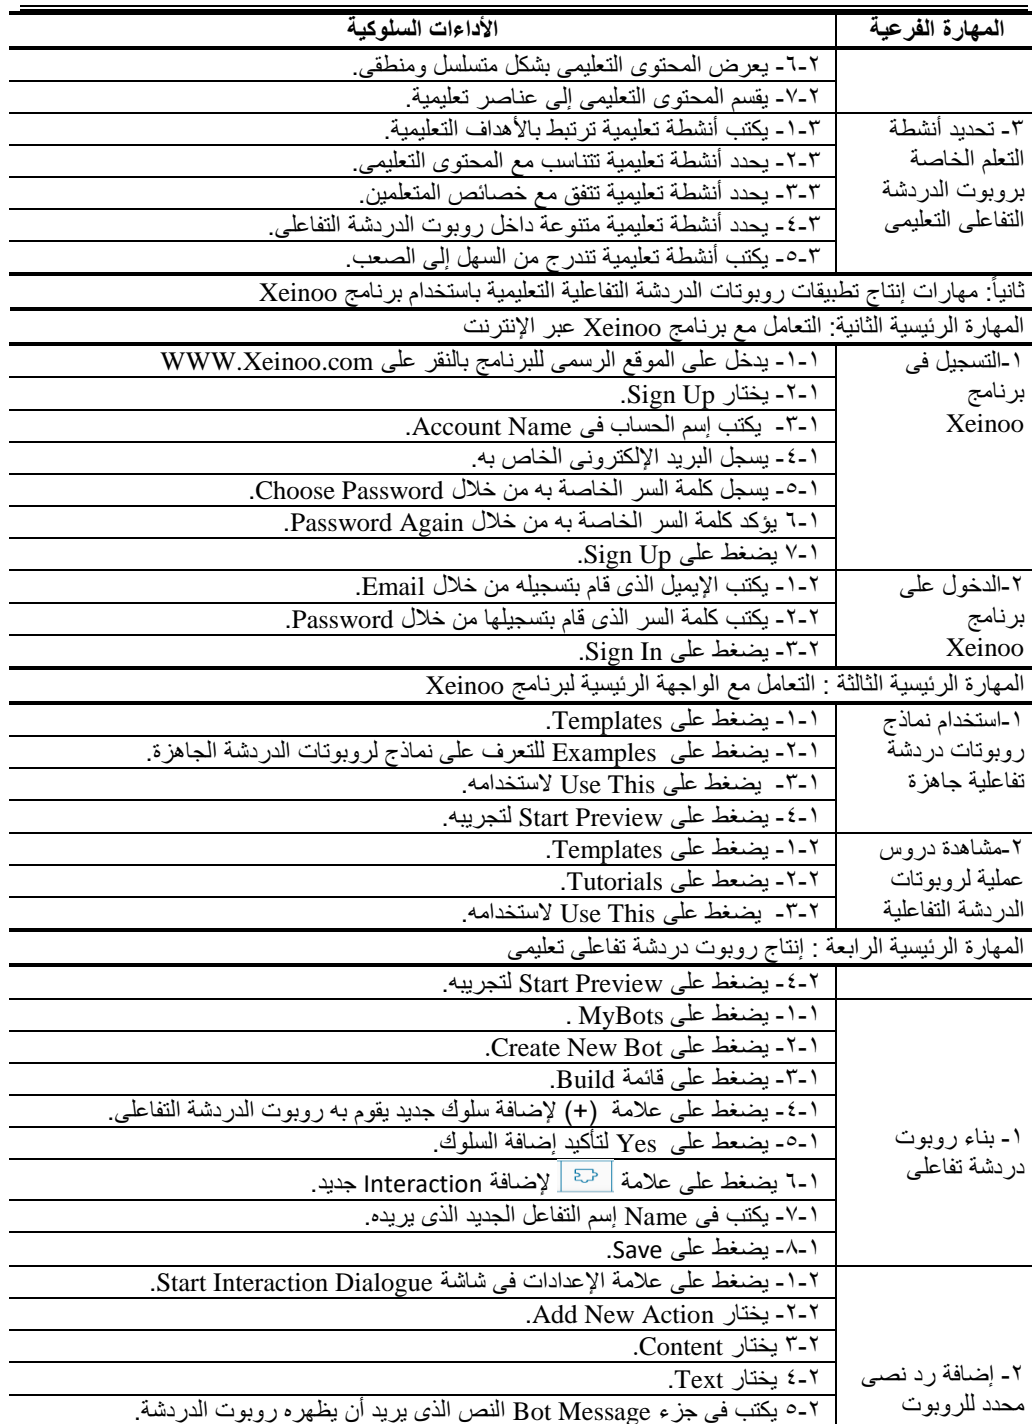 المهارة الفرعية	الأداءات السلوكية
٢-٦- يعرض المحتوى التعليمى بشكل متسلسل ومنطقى.
٢-٧- يقسم المحتوى التعليمى إلى عناصر تعليمية.
٣- تحديد أنشطة	٣-١- يكتب أنشطة تعليمية ترتبط بالأهداف التعليمية.
التعلم الخاصة	٣-٢- يحدد أنشطة تعليمية تتناسب مع المحتوى التعليمى.
بروبوت الدردشة	٣-٣- يحدد أنشطة تعليمية تتفق مع خصائص المتعلمين.
التفاعلى التعليمى	٣-٤- يحدد أنشطة تعليمية متنوعة داخل روبوت الدردشة التفاعلى.
٣-٥- يكتب أنشطة تعليمية تندرج من السهل إلى الصعب.
ثانياً: مهارات إنتاج تطبيقات روبوتات الدردشة التفاعلية التعليمية باستخدام برنامج Xeinoo
المهارة الرئيسية الثانية: التعامل مع برنامج Xeinoo عبر الإنترنت
١-التسجيل فى	١-١- يدخل على الموقع الرسمى للبرنامج بالنقر على WWW.Xeinoo.com
برنامج	١-٢- يختار Sign Up.
Xeinoo	١-٣- يكتب إسم الحساب فى Account Name.
١-٤- يسجل البريد الإلكترونى الخاص به.
١-٥- يسجل كلمة السر الخاصة به من خلال Choose Password.
١-٦ يؤكد كلمة السر الخاصة به من خلال Password Again.
١-٧ يضغط على Sign Up.
٢-الدخول على	٢-١- يكتب الإيميل الذى قام بتسجيله من خلال Email.
برنامج	٢-٢- يكتب كلمة السر الذى قام بتسجيلها من خلال Password.
Xeinoo	٢-٣- يضغط على Sign In.
المهارة الرئيسية الثالثة : التعامل مع الواجهة الرئيسية لبرنامج Xeinoo
١-استخدام نماذج	١-١- يضغط على Templates.
روبوتات دردشة	١-٢- يضغط على Examples للتعرف على نماذج لروبوتات الدردشة الجاهزة.
تفاعلية جاهزة	١-٣- يضغط على Use This لاستخدامه.
١-٤- يضغط على Start Preview لتجريبه.
٢-مشاهدة دروس	٢-١- يضغط على Templates.
عملية لروبوتات	٢-٢- يضعط على Tutorials.
الدردشة التفاعلية	٢-٣- يضغط على Use This لاستخدامه.
المهارة الرئيسية الرابعة : إنتاج روبوت دردشة تفاعلى تعليمى
٢-٤- يضغط على Start Preview لتجريبه.
١-١- يضغط على MyBots .
١-٢- يضغط على Create New Bot.
١-٣- يضغط على قائمة Build.
١-٤- يضغط على علامة (+) لإضافة سلوك جديد يقوم به روبوت الدردشة التفاعلى.
١- بناء روبوت	١-٥- يضعط على Yes لتأكيد إضافة السلوك.
دردشة تفاعلى	١-٦ يضغط على علامة لإضافة Interaction جديد.
١-٧- يكتب فى Name إسم التفاعل الجديد الذى يريده.
١-٨- يضغط على Save.
٢-١- يضغط على علامة الإعدادات فى شاشة Start Interaction Dialogue.
٢-٢- يختار Add New Action.
٢-٣ يختار Content.
٢- إضافة رد نصى	٢-٤ يختار Text.
محدد للروبوت	٢-٥ يكتب فى جزء Bot Message النص الذى يريد أن يظهره روبوت الدردشة.